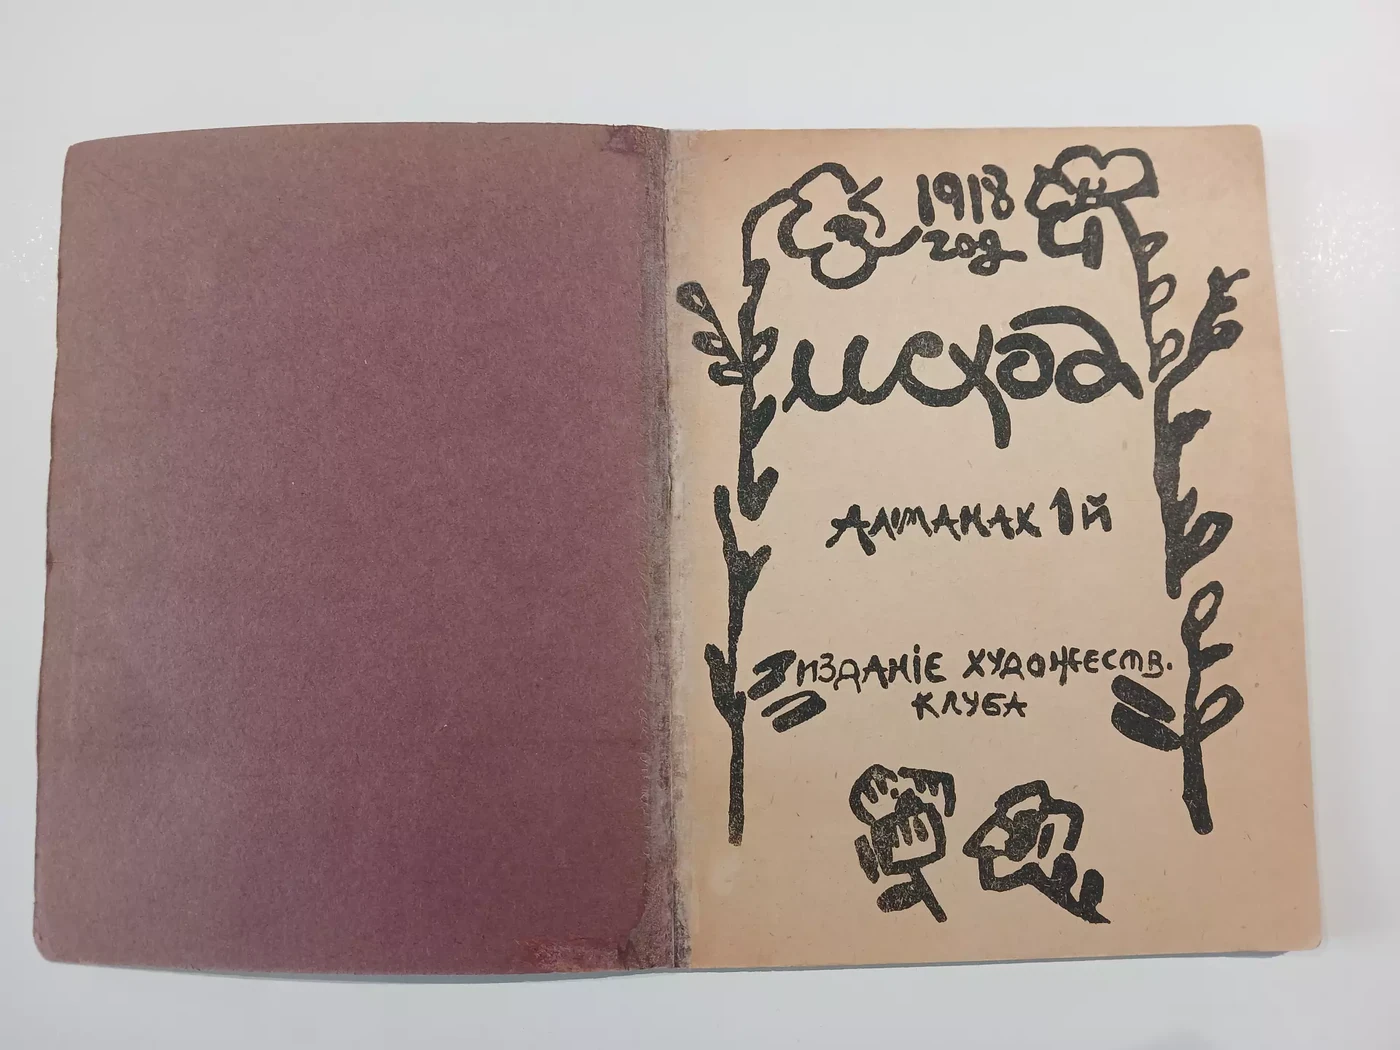 1918
год
исход
Альманах 1й
изданiе художеств.
клуба